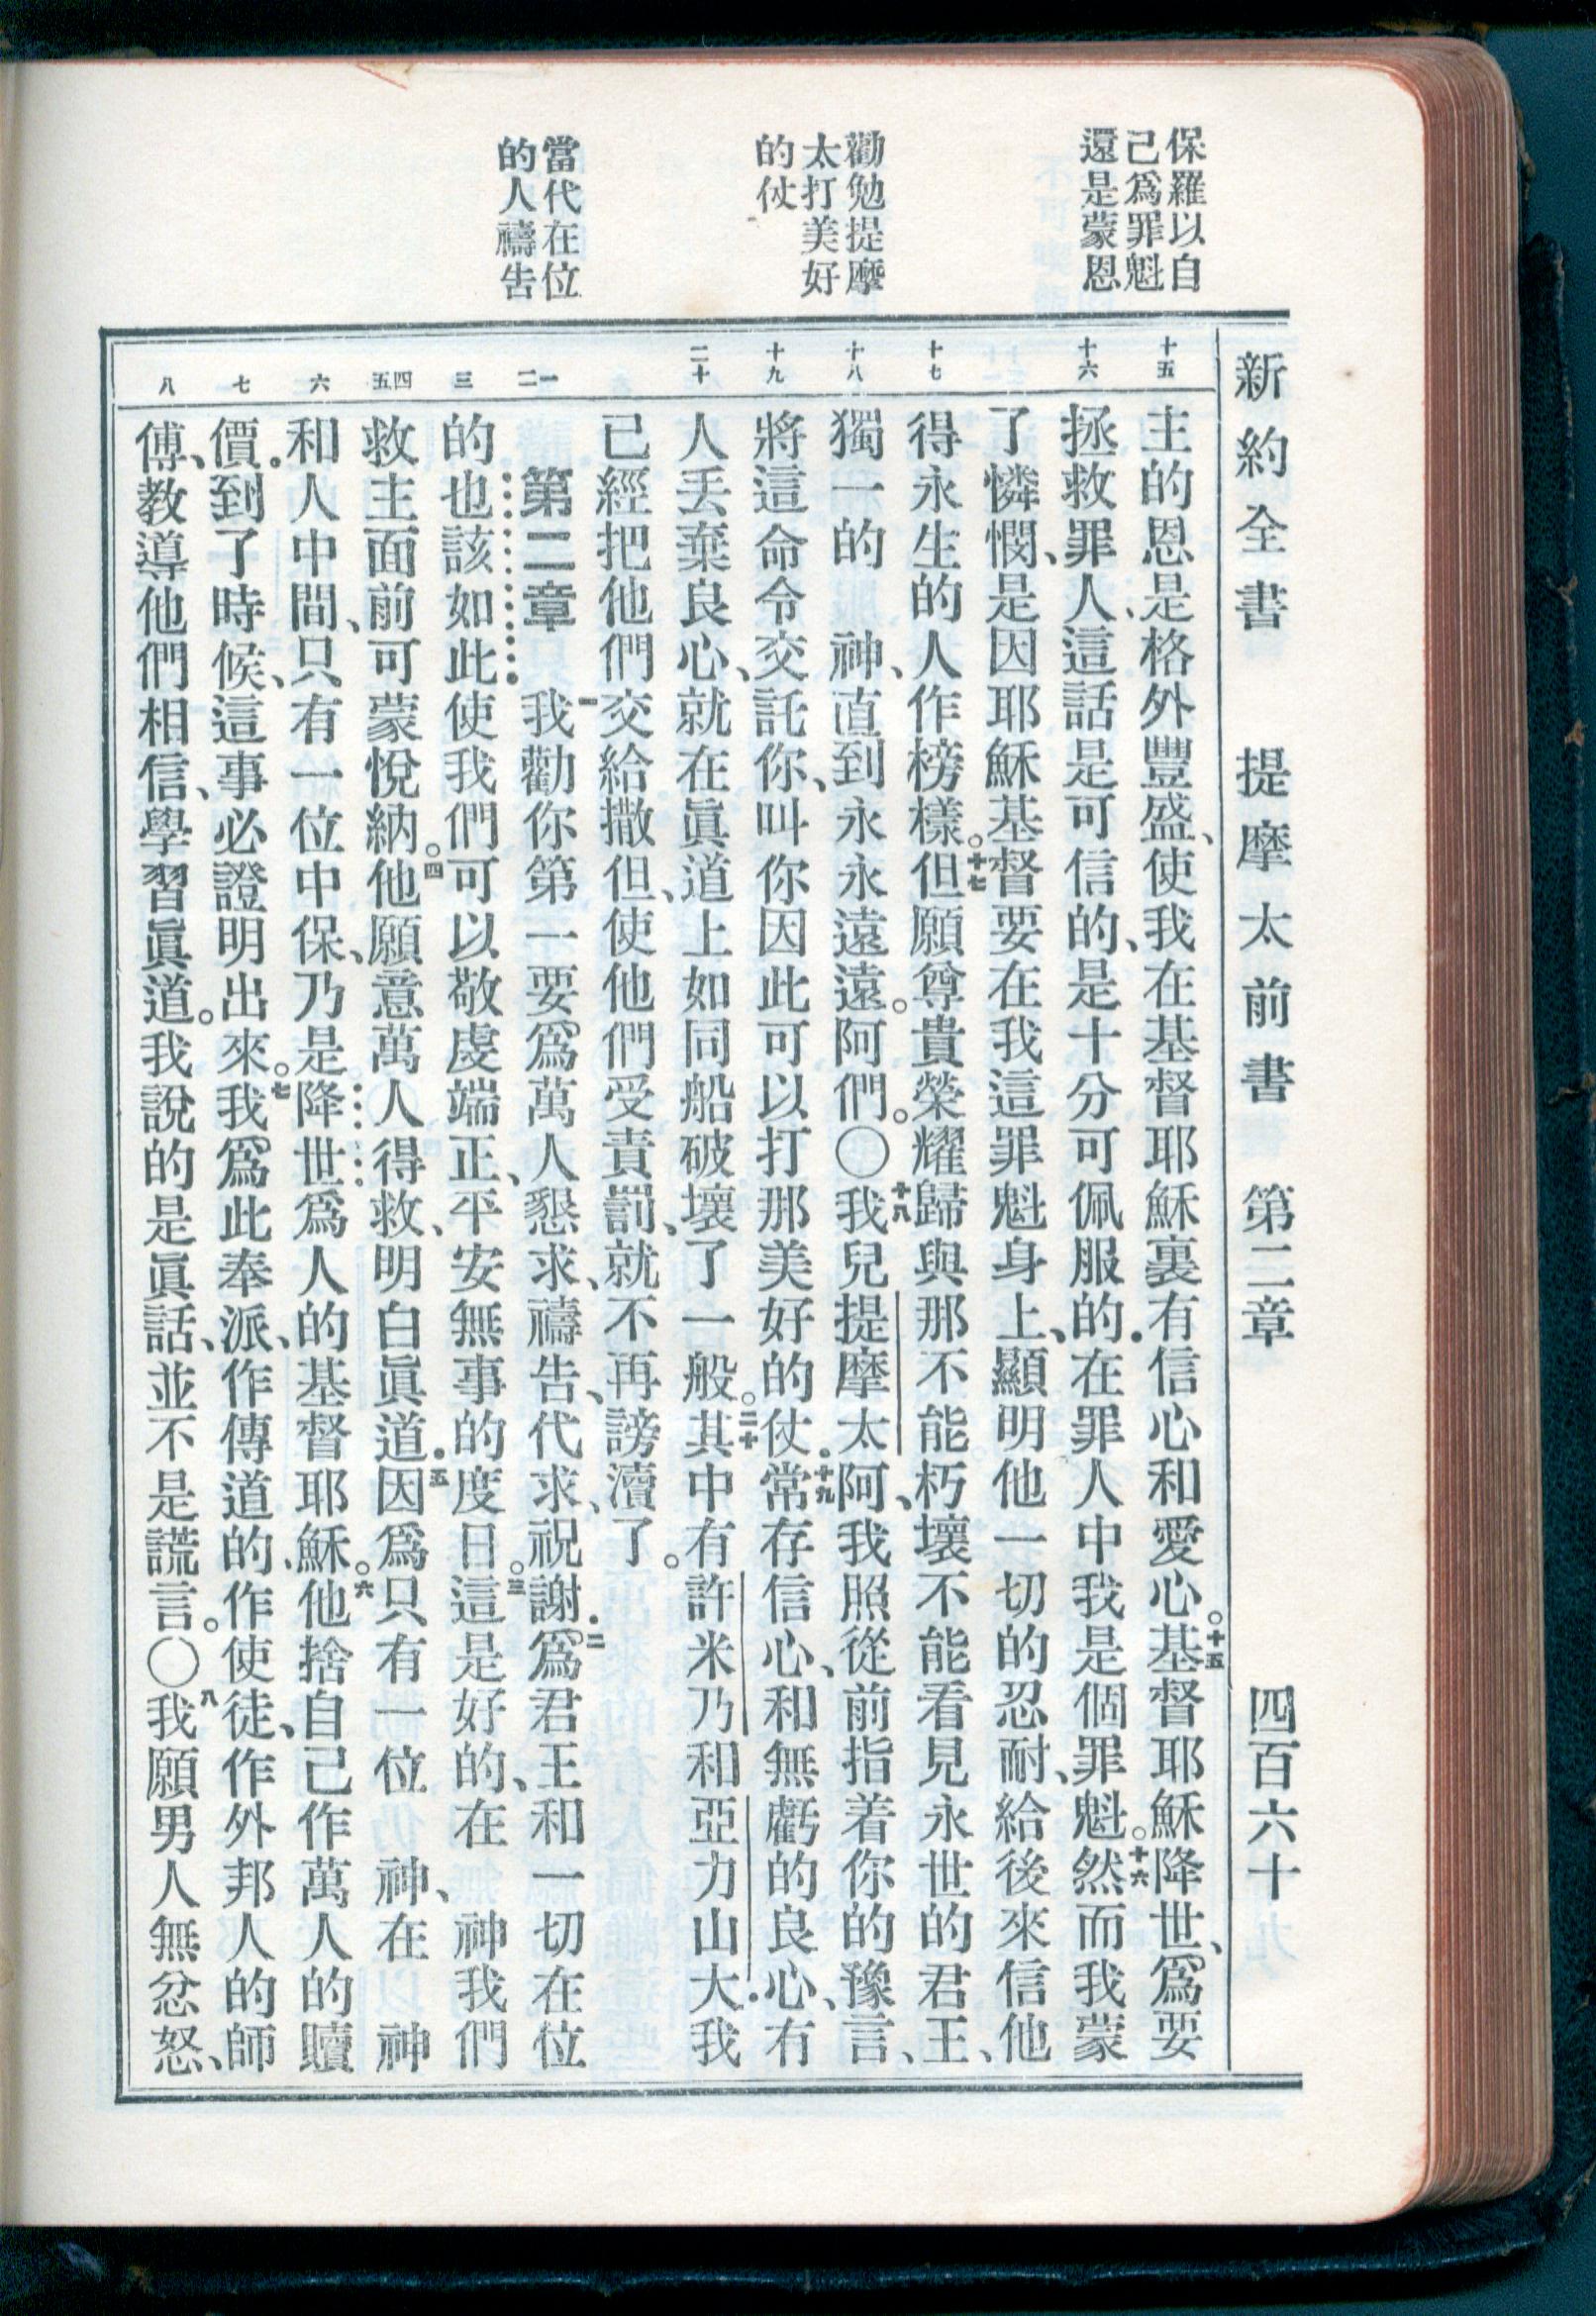 保羅以自
己爲罪魁
還是蒙恩
勸勉提摩
太打美好
的仗
當代在位
的人禱告
新約全書　提摩太前書　第二章　四百六十
十五
十六
十七
十八
十九
二十
一二
三
四五
六
七
八
主的恩是格外豐盛、使我在基督耶穌裏有信心和愛心。十五基督耶穌降世、爲要
拯救罪人、這話是可信的、是十分可佩服的．在罪人中我是個罪魁。十六然而我蒙
了憐憫、是因耶穌基督要在我這罪魁身上、顯明他一切的忍耐、給後來信他
得永生的人作榜樣。十七但願尊貴榮耀歸與那不能朽壞不能看見永世的君王、
獨一的　神、直到永永遠遠。阿們。〇十八我兒提摩太阿、我照從前指着你的豫言、
將這命令交託你、叫你因此可以打那美好的仗．十九常存信心、和無虧的良心、有
人丟棄良心、就在眞道上如同船破壞了一般。二十其中有許米乃和亞力山大．我
已經把他們交給撒但、使他們受責罰、就不再謗瀆了。
第二章　一我勸你第一要爲萬人懇求、禱告、代求、祝謝．二爲君王和一切在位
的也該如此．使我們可以敬虔端正、平安無事的度日。三這是好的、在　神我們
救主面前可蒙悅納。四他願意萬人得救、明白眞道．五因爲只有一位　神、在　神
和人中間、只有一位中保、乃是降世爲人的基督耶穌。六他捨自己作萬人的贖
價．到了時候、這事必證明出來。七我爲此奉派、作傳道的、作使徒、作外邦人的師
傅、教導他們相信、學習眞道。我說的是眞話、並不是謊言。〇八我願男人無忿怒、